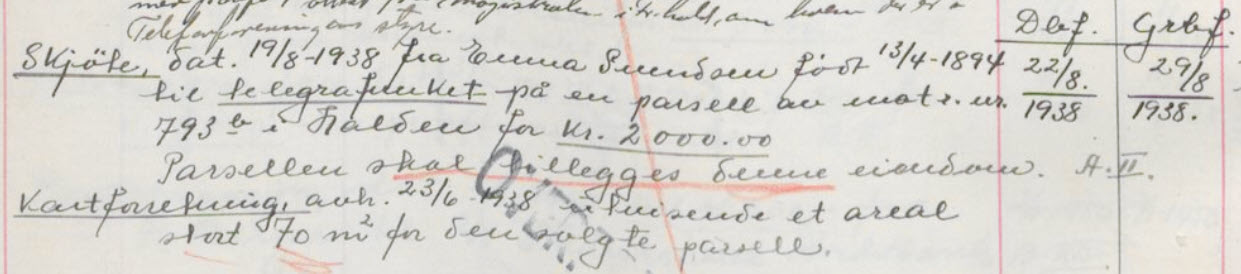 Telefonforeningens styre.
Dbf. Grbf.
Skjöte, dat. 19/8-1938 fra Emma Svendsen født 13/4-1894 22/8. 29/8
til telegrafverket på en parsell av matr. nr. 1938 1938.
793 b i Halden for kr. 2000.00
Parsellen skal tillegges denne eiendom. A. II.
Kartforretning, avh. 23/6-1938 utvisende et areal
stort 70 m² for den solgte parsell.